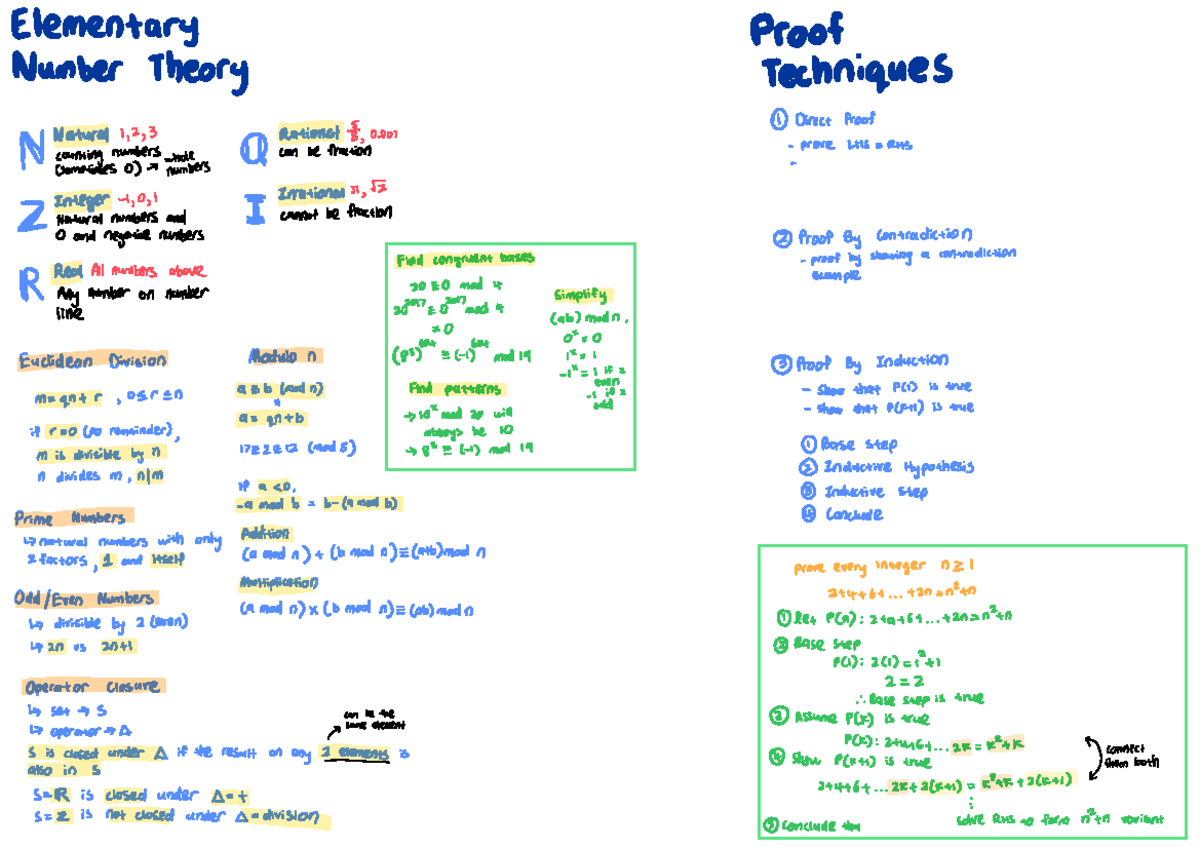 Elementary
Number Theory
N Natural 1, 2, 3
counting numbers
(sometimes 0) → whole numbers
Z Integer -1, 0, 1
Natural numbers and
0 and negative numbers
R Real All numbers above
Any number on number
line
Q Rational 0.001
can be fraction
I Irrational π, √2
cannot be fraction
Find congruent bases
20 ≡ 0 mod 4
20^2017 ≡ 0^2017 mod 4
= 0
mod 19
Find patterns
→ 10^x mod 20 will
always be 10
mod 19
Simplify
(ab) mod n,
0^x = 0
1^x = 1
-1^x = 1 if x
even
-1 if x
odd
Euclidean Division
m = qn + r , 0 ≤ r ≤ n
if r=0 (no remainder),
m is divisible by n
n divides m, n|m
Prime Numbers
↳ natural numbers with only
2 factors, 1 and itself
Odd/Even Numbers
↳ divisible by 2 (even)
↳ 2n vs 2n+1
Operator Closure
↳ set → S
↳ operator → Δ
can be the
same element
S is closed under Δ if the result on any 2 elements is
also in S
S=R is closed under Δ=+
S=Z is not closed under Δ=division
Modulo n
a ≡ b (mod n)
a = qn + b
17 ≡ 2 ≡ 12 (mod 5)
if a < 0,
-a mod b = b-(a mod b)
Addition
(a mod n) + (b mod n) ≡ (a+b) mod n
Multiplication
(a mod n) × (b mod n) ≡ (ab) mod n
Proof
Techniques
① Direct Proof
- prove LHS = RHS
-
② Proof By Contradiction
- proof by showing a contradiction
example
③ Proof By Induction
- Show that P(1) is true
- Show that P(k+1) is true
① Base step
② Inductive Hypothesis
③ Inductive Step
④ Conclude
prove every integer n ≥ 1
2+4+6+...+2n = n²+n
① Let P(n): 2+4+6+...+2n = n²+n
② Base step
P(1): 2(1) = 1²+1
2 = 2
∴ Base step is true
③ Assume P(k) is true
P(k): 2+4+6+... 2k = k²+k
④ Show P(k+1) is true
connect
them both
2+4+6+... 2k + 2(k+1) = k²+k + 2(k+1)
⋮
solve RHS to form n²+n variant
⑤ Conclude